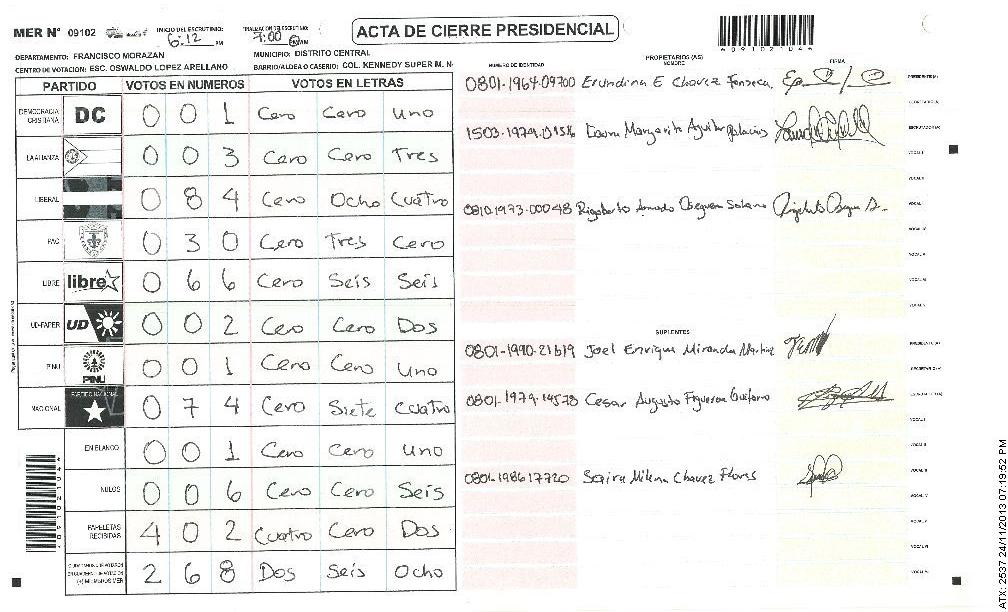 MER N° 09102 INICIO DEL ESCRUTINIO: 6:12 PM FINALIZACION ESCRUTINIO: 7:00 PM
ACTA DE CIERRE PRESIDENCIAL
DEPARTAMENTO: FRANCISCO MORAZAN MUNICIPIO: DISTRITO CENTRAL
CENTRO DE VOTACION: ESC. OSWALDO LOPEZ ARELLANO BARRIO/ALDEA O CASERIO: COL. KENNEDY SUPER M. N
PARTIDO VOTOS EN NUMEROS VOTOS EN LETRAS
DEMOCRACIA CRISTIANA DC 0 0 1 Cero Cero uno
LA ALIANZA 0 0 3 Cero Cero Tres
LIBERAL 0 8 4 Cero Ocho Cuatro
PAC 0 3 0 Cero Tres Cero
LIBRE libre 0 6 6 Cero Seis Seis
UD-FAPER UD 0 0 2 Cero Cero Dos
PINU PINU 0 0 1 Cero Cero uno
NACIONAL PARTIDO NACIONAL 0 7 4 Cero Siete cuatro
EN BLANCO 0 0 1 Cero Cero uno
NULOS 0 0 6 Cero Cero Seis
PAPELETAS RECIBIDAS 4 0 2 Cuatro Cero Dos
2 6 8 Dos Seis Ocho
NUMERO DE IDENTIDAD PROPIETARIOS (AS) NOMBRE FIRMA
0801-1967-09700 Erundina E Chavez Fonseca PRESIDENTE(A)
SECRETARIO(A)
Margarita Aguilar palacios ESCRUTADOR(A)
VOCAL I
VOCAL II
0810-1973-00048 Rigoberto Amado Oseguera Solano
SUPLENTES
0801-1990-21619 Joel Enrique Miranda Martinez PRESIDENTE(A)
SECRETARIO(A)
0801-1979-14578 Cesar Augusto Figueroa
0801-1986-17720 Saira Milena Chavez Flores
ATX: 2537 24/11/2013 07:19:52 PM